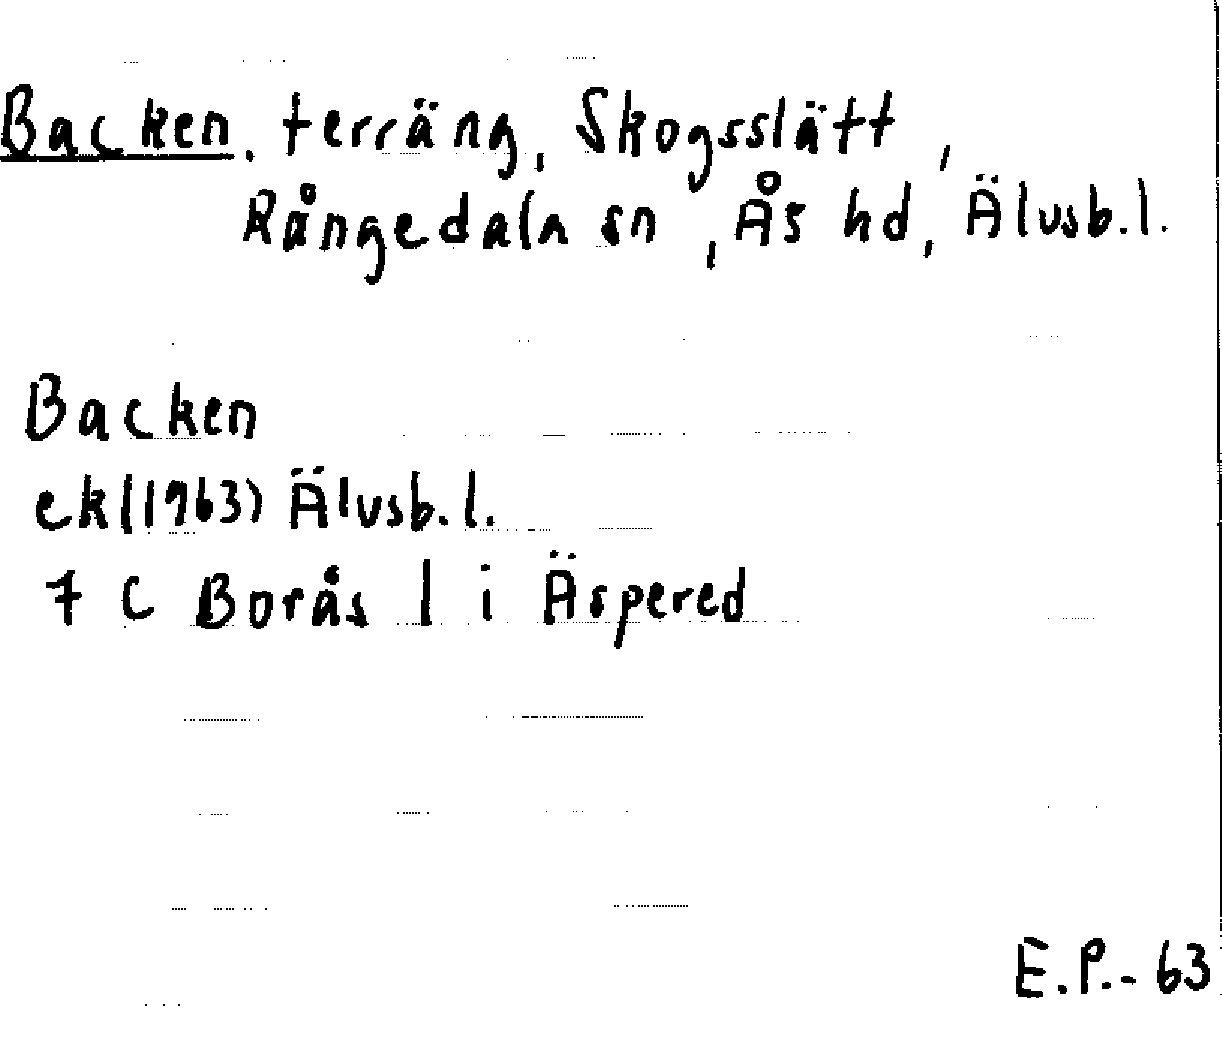 Backen, terräng, Skogsslätt,
Rångedala sn, Ås hd, Älvsb.l.
Backen
ek(1963) Älvsb.l.
7 C Borås l i Äspered
E.P.-63